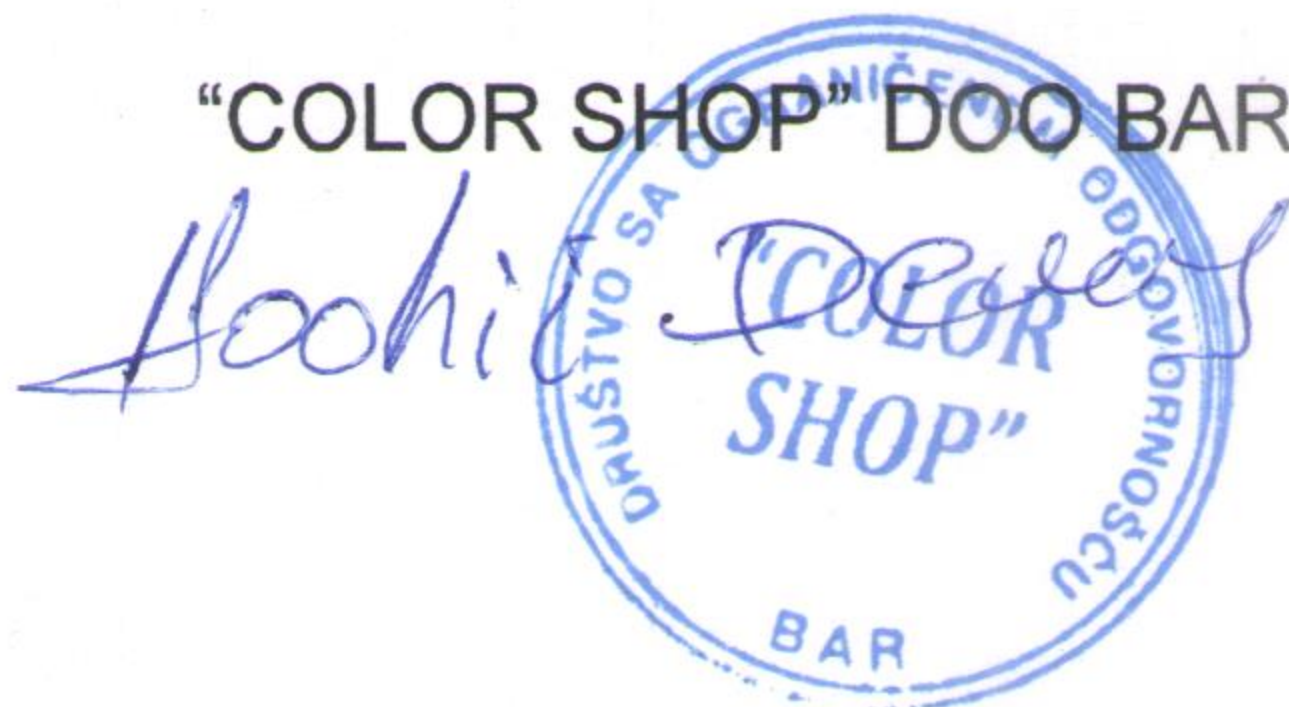 “COLOR SHOP” DOO BAR
DRUŠTVO SA OGRANIČENOM ODGOVORNOŠĆU
“COLOR
SHOP”
BAR